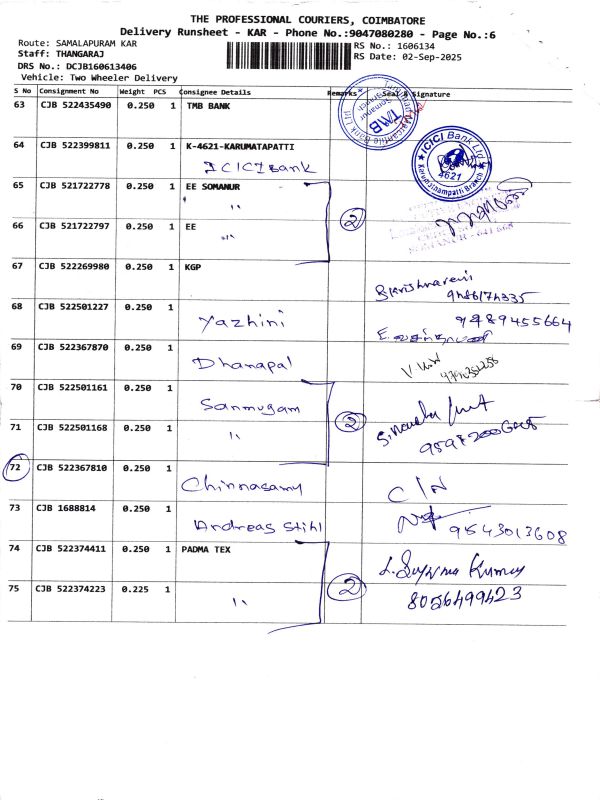 THE PROFESSIONAL COURIERS, COIMBATORE
Delivery Runsheet - KAR - Phone No.:9047080280 - Page No.:6
Route: SAMALAPURAM KAR
RS No.: 1606134
Staff: THANGARAJ
RS Date: 02-Sep-2025
DRS No.: DCJB160613406
Vehicle: Two Wheeler Delivery
S No Consignment No Weight PCS Consignee Details Remarks Seal & Signature
63 CJB 522435490 0.250 1 TMB BANK
TMB
Somanur Branch
64 CJB 522399811 0.250 1 K-4621-KARUMATAPATTI
ICICI Bank
ICICI Bank Ltd.
4621
65 CJB 521722778 0.250 1 EE SOMANUR
"
2
66 CJB 521722797 0.250 1 EE
"
67 CJB 522269980 0.250 1 KGP
68 CJB 522501227 0.250 1
Yazhini
9489455664
69 CJB 522367870 0.250 1
Dhanapal
70 CJB 522501161 0.250 1
Sanmugam
2
71 CJB 522501168 0.250 1
"
72 CJB 522367810 0.250 1
Chinnasamy
C/N
73 CJB 1688814 0.250 1
Andreas Stihl
9543013608
74 CJB 522374411 0.250 1 PADMA TEX
2
75 CJB 522374223 0.225 1
"
8056499423